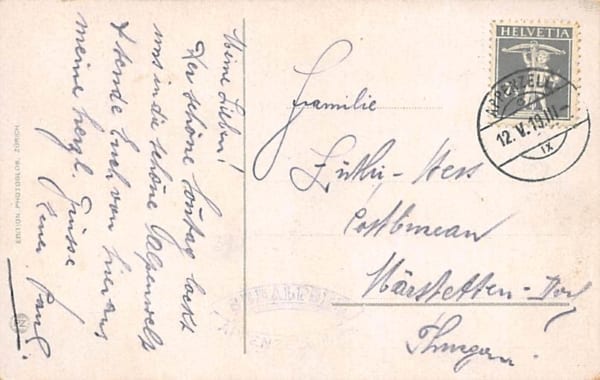 Meine Lieben!
Der schöne Sontag lockt
uns in die schöne Alpenwelt
& sende Euch von hier aus
meine herzl. Grüsse
Euer Paul.
EDITION PHOTOGLOB, ZÜRICH
HELVETIA
APPENZELL
12.V.19 III-
IX
Familie
Lüthi-Hess
Postbureau
Märstetten-Dorf
Thurgau.